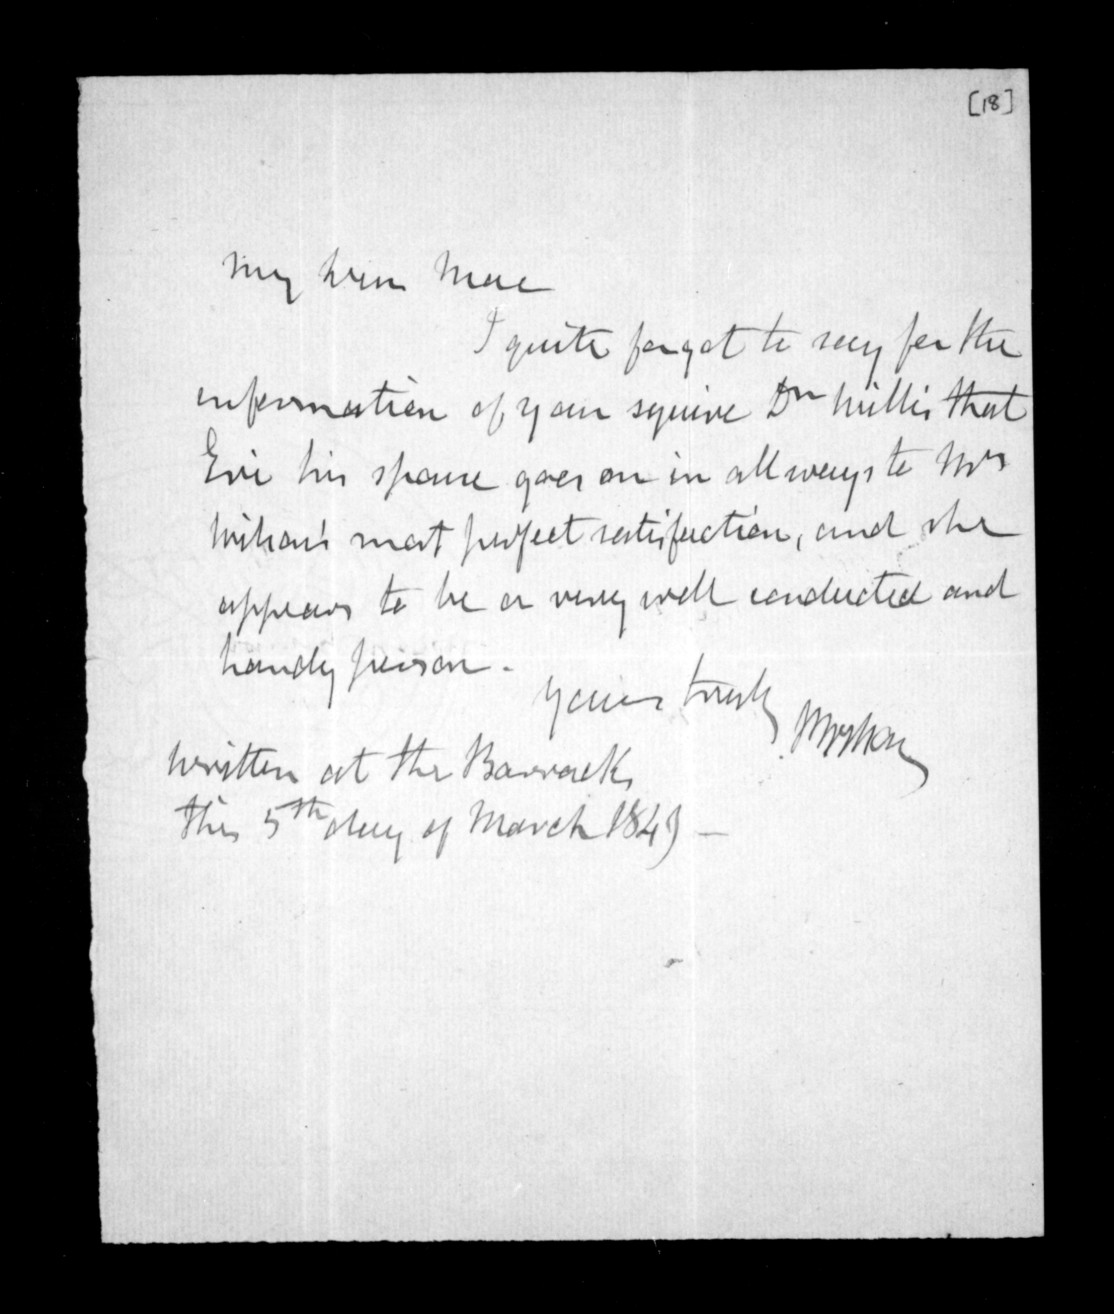 [18]
My dear Mac
I quite forgot to say for the
information of your squire Dr Willis that
his spouse goes on in all ways to Mrs
Wilson's most perfect satisfaction, and she
appears to be a very well conducted and
handy person.
Yours truly
Written at the Barracks
this 5th day of March 1849 —